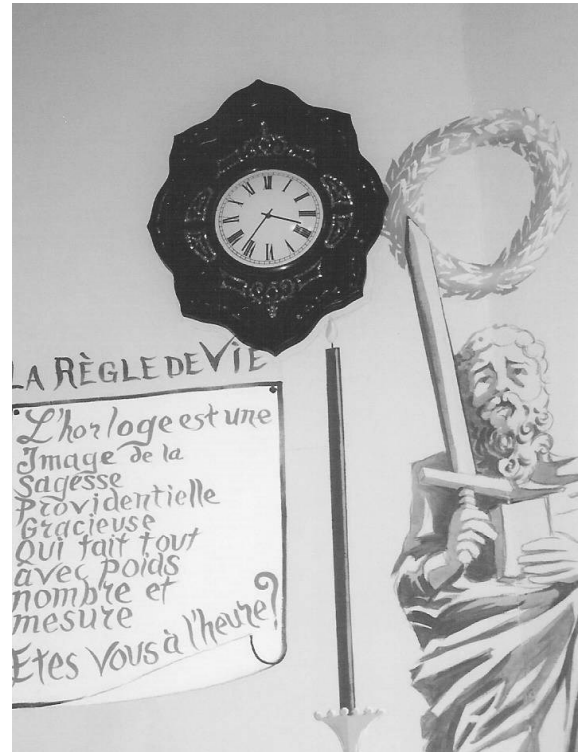 LA RÈGLE DE VIE
L'horloge est une
Image de la
Sagesse
Providentielle
Gracieuse
Qui fait tout
avec poids
nombre et
mesure
Etes Vous à l'heure?